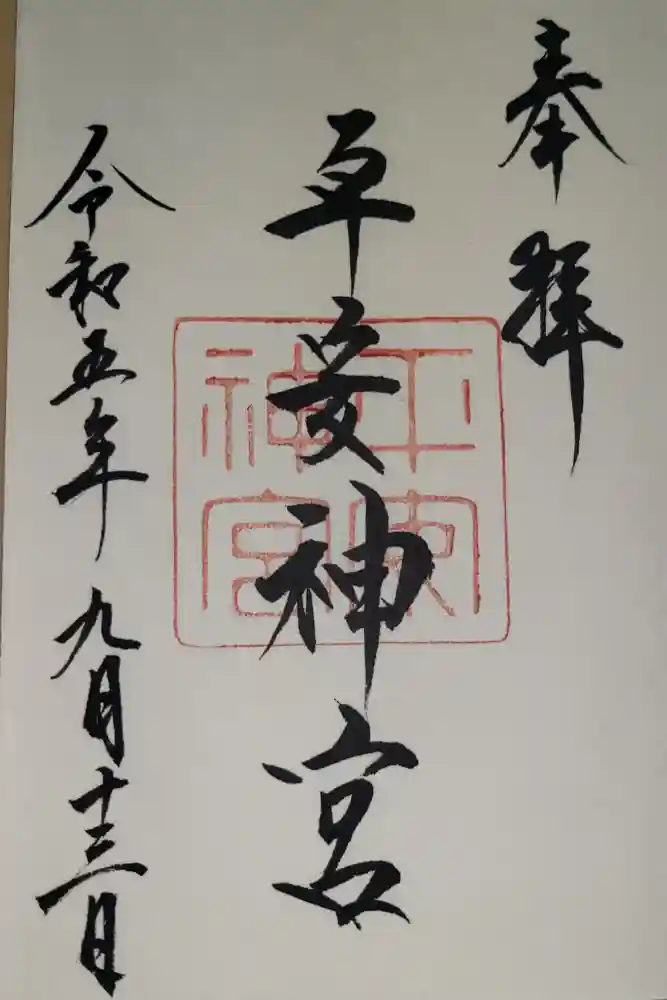 奉拝
平安神宮
平安神宮
令和五年九月十三日